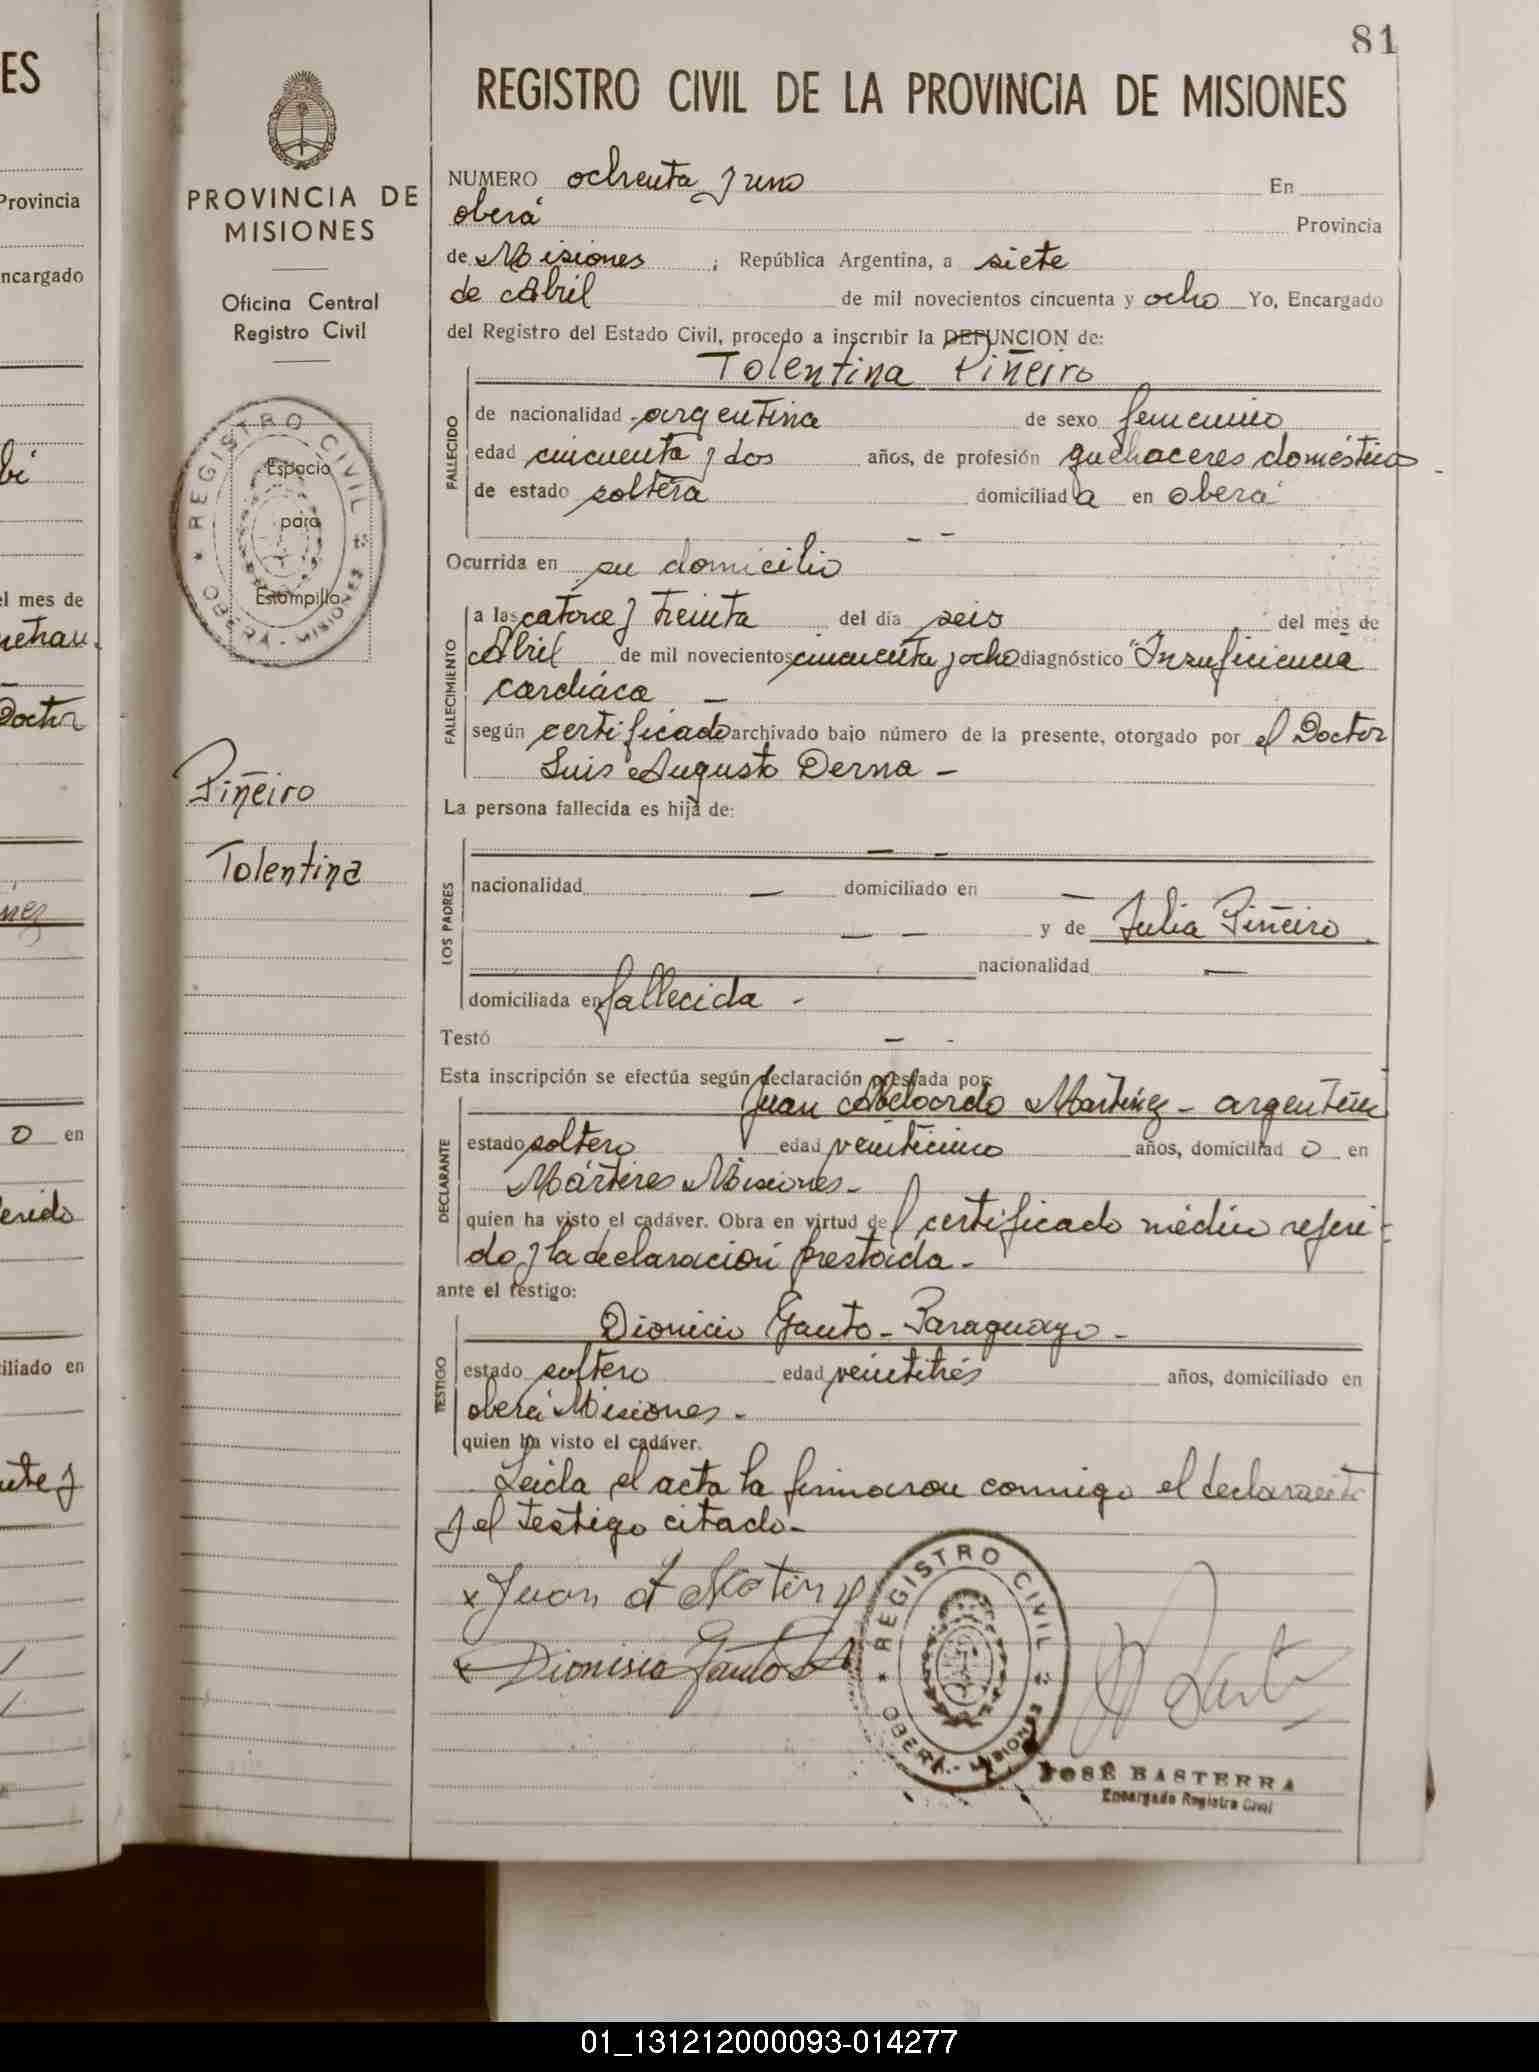 81
REGISTRO CIVIL DE LA PROVINCIA DE MISIONES
PROVINCIA DE
MISIONES
Oficina Central
Registro Civil
REGISTRO CIVIL
OBERÁ - MISIONES
Espacio
para
Estampilla
Piñeiro
Tolentina
NUMERO ochenta y uno En
oberá Provincia
de Misiones ; República Argentina, a siete
de Abril de mil novecientos cincuenta y ocho Yo, Encargado
del Registro del Estado Civil, procedo a inscribir la DEFUNCION de:
Tolentina Piñeiro
FALLECIDO
de nacionalidad argentina de sexo femenino
edad cincuenta y dos años, de profesión quehaceres domésticos
de estado soltera domiciliad a en oberá
Ocurrida en su domicilio
FALLECIMIENTO
a las catorce y treinta del día seis del mes de
Abril de mil novecientos cincuenta y ocho diagnóstico "Insuficiencia
cardíaca
según certificado archivado bajo número de la presente, otorgado por el Doctor
Luis Augusto Derna -
La persona fallecida es hija de:
LOS PADRES
nacionalidad — domiciliado en —
— — y de Julia Piñeiro
nacionalidad —
domiciliada en fallecida -
Testó - -
Esta inscripción se efectúa según declaración prestada por:
DECLARANTE
Juan Abelardo Martínez - argentino
estado soltero edad veinticinco años, domiciliad o en
Mártires Misiones -
quien ha visto el cadáver. Obra en virtud del certificado médico referi-
do y la declaración prestada -
ante el testigo:
TESTIGO
Dionicio Gauto - Paraguayo -
estado soltero edad veintitrés años, domiciliado en
oberá Misiones -
quien ha visto el cadáver.
Leída el acta la firmaron conmigo el declarante
y el testigo citado -
x Juan A Matinz
x Dionisio Gauto
REGISTRO CIVIL
OBERÁ - MISIONES
JOSÉ BASTERRA
Encargado Registro Civil
ES
Provincia
encargado
el mes de
Doctor
0 en
iliado en
01_131212000093-014277